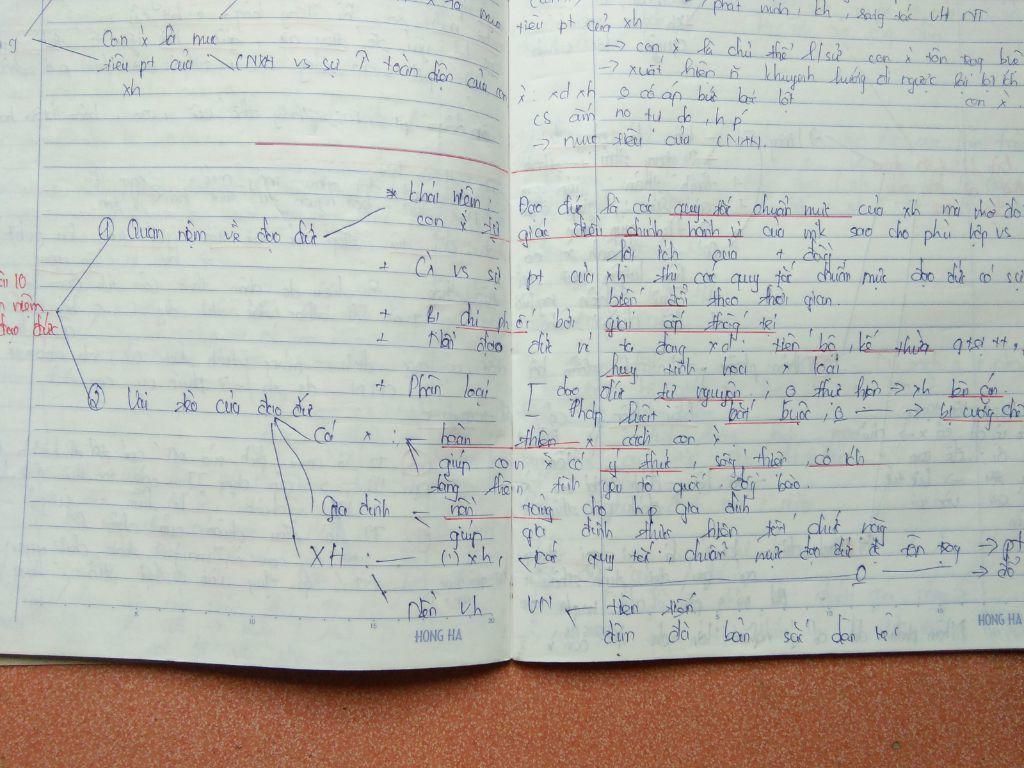 Con x là mục
tiêu pt của CNXH vs sự ↑ toàn diện của con
xh
, phát minh, kh, sáng tác VH NT
tiêu pt của xh
→ con x là chủ thể l/sử con x tôn trọng
→ xuất hiện n khuynh hướng đi ngược lại bị
x : xd xh 0 có áp bức bóc lột con x.
cs ấm no tự do, hp
→ mục tiêu của CNXH.
① Quan niệm về đạo đức
* khái niệm : Đạo đức là các quy tắc chuẩn mực của xh mà nhờ đó
con x tự giác điều chỉnh hành vi của mik sao cho phù hợp vs
lợi ích của + đồng
+ Cx vs sự pt của xh thì các quy tắc chuẩn mực đạo đức có sự
biến đổi theo thời gian.
10
niệm
đạo đức
+ Bị chi phối bởi giai cấp thống trị
+ Nền đạo đức ta đang xd : tiến bộ, kế thừa
huy tinh hoa x loại
+ Phân loại [ đạo đức tự nguyện ; 0 thực hiện → xh lên án.
pháp luật : bắt buộc, 0 → bị cưỡng chế
② Vai trò của đạo đức
Cá x : hoàn thiện x cách con x
giúp con x có ý thức, sống thiện, có ích
tăng thêm tình yêu tổ quốc, đồng bào.
Gia đình nền tảng cho hp gia đình
giúp gia đình
XH : (1) xh, các quy tắc, chuẩn mực đạo đức đc tôn trọng → pt
0 → đổ
Nền vh VN tiên tiến
đậm đà bản sắc dân tộc
HONG HA
HONG HA